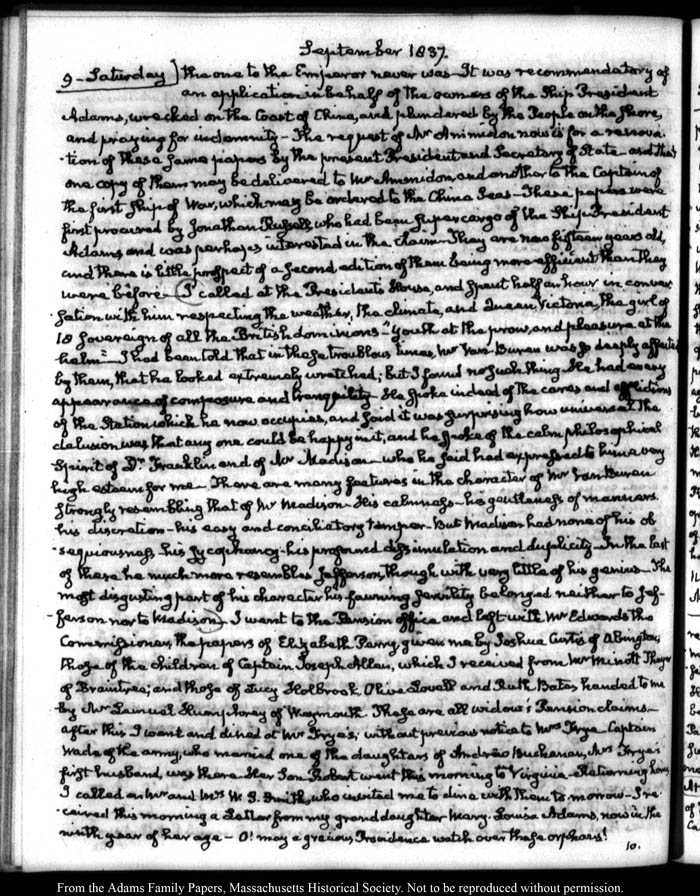 September 1837.
9-Saturday} the one to the Emperor never was—It was recommendatory of
an application in behalf of the owners of the Ship President
Adams, wrecked on the Coast of China, and plundered by the People on the Shore,
and praying for indemnity—The request of Mr Ammidon now is for a renova
-tion of these same papers by the present President and Secretary of State—and that
one copy of them may be delivered to Mr Ammidon, and another to the Captain of
the first Ship of War, which may be ordered to the China Seas—These papers were
first procured by Jonathan Russell, who had been Supercargo of the Ship President
Adams and was perhaps interested in the claim—They are now fifteen years old,
and there is little prospect of a second edition of them being more efficient than they
were before—I called at the President's House, and spent half an hour in conver
-sation with him respecting the weather, the climate, and Queen Victoria, the girl of
18 Sovereign of all the British dominions—"Youth at the prow, and pleasure at the
helm"—I had been told that in these troublous times, Mr Van Buren was so deeply affected
by them, that he looked extremely wretched; but I found no such thing—He had every
appearance of composure and tranquility—He spoke indeed of the cares and afflictions
of the Station which he now occupies, and said it was surprising how universal the
delusion was that any one could be happy in it, and he spoke of the calm philosophical
Spirit of Dr Franklin and of Mr Madison—who he said had expressed to him a very
high esteem for me—There are many features in the character of Mr Van Buren
strongly resembling that of Mr Madison—His calmness—his gentleness of manners
his discretion—his easy and conciliatory temper—But Madison had none of his ob
-sequiousness his sycophancy—his profound dissimulation and duplicity—In the last
of these he much more resembles Jefferson, though with very little of his genius—The
most disgusting part of his character his fawning servility belonged neither to Jef-
ferson nor to Madison—I went to the Pension office and left with Mr Edwards the
Commissioner, the papers of Elizabeth Perry, given me by Joshua Curtis of Abington;
those of the children of Captain Joseph Allen, which I received from Mr Minott Thayer
of Braintree; and those of Lucy Holbrook Olive Lovell and Ruth Bates, handed to me
by Mr Lemuel Humphrey of Weymouth These are all widows' Pension claims—
after this I went and dined at Mr Frye's; without previous notice to Mrs Frye—Captain
Wade of the army, who married one of the daughters of Andrew Buchanan, Mrs Frye's
first husband, was there—Her Son Robert went this morning to Virginia—Returning home
I called on Mr and Mrs W. S. Smith, who invited me to dine with them to-morrow—I re
-ceived this morning a Letter from my granddaughter Mary-Louisa Adams, now in the
ninth year of her age—O! may a gracious Providence watch over these orphans!
10.
From the Adams Family Papers, Massachusetts Historical Society. Not to be reproduced without permission.